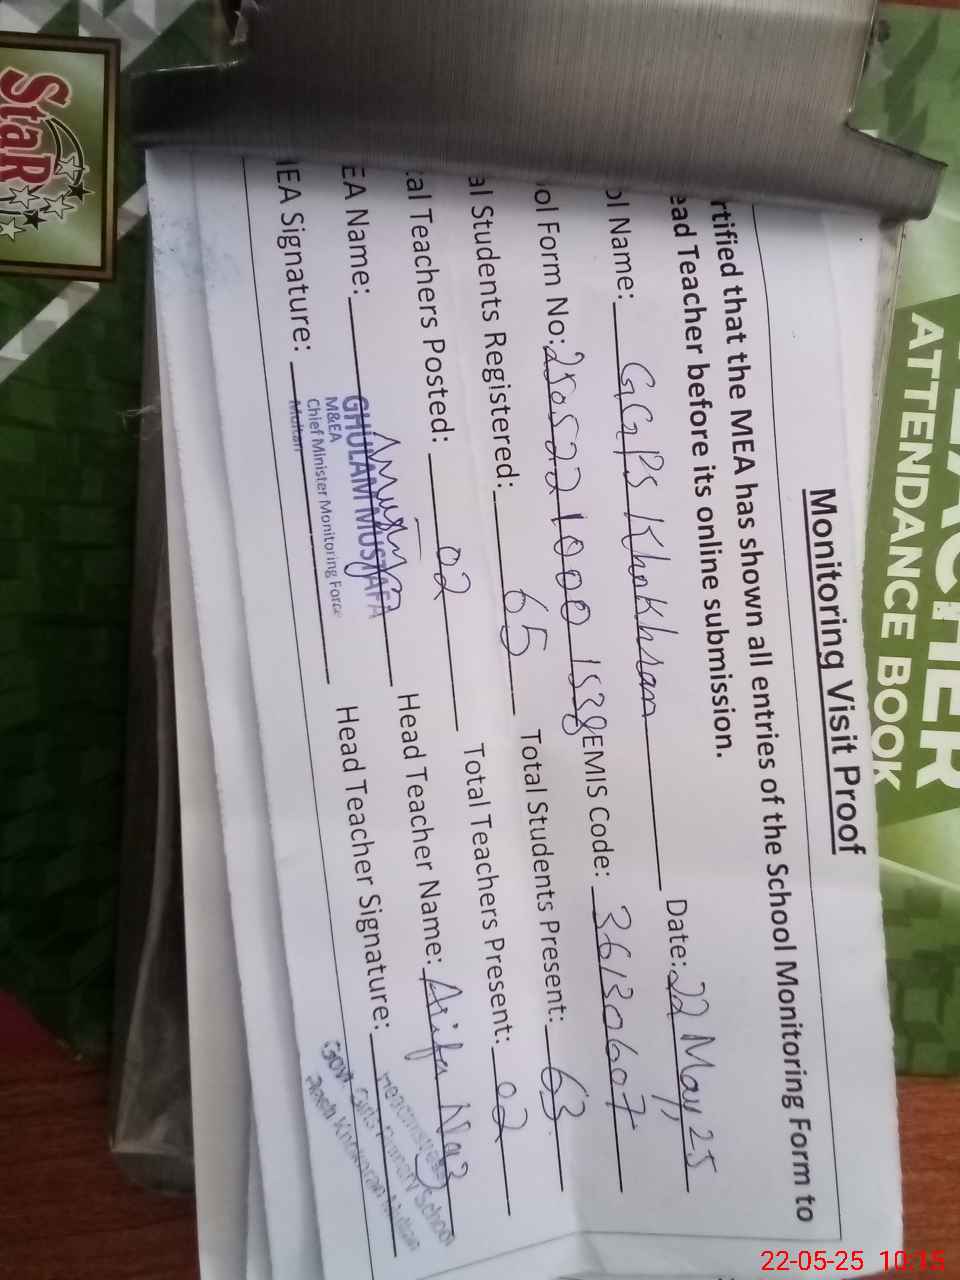 StaR
ATTENDANCE BOOK
Monitoring Visit Proof
rtified that the MEA has shown all entries of the School Monitoring Form to
ead Teacher before its online submission.
ol Name: GGPS Khokhran Date: 22 May, 25
ol Form No: 250522 1000 1538 EMIS Code: 36130607
al Students Registered: 65 Total Students Present: 63
al Teachers Posted: 02 Total Teachers Present: 02
EA Name: GHULAM MUSTAFA Head Teacher Name: Arifa Naz
M&EA
Chief Minister Monitoring Force
Multan
IEA Signature: Head Teacher Signature:
Headmistress
Govt. Girls Primary School
Multan
22-05-25 10:15